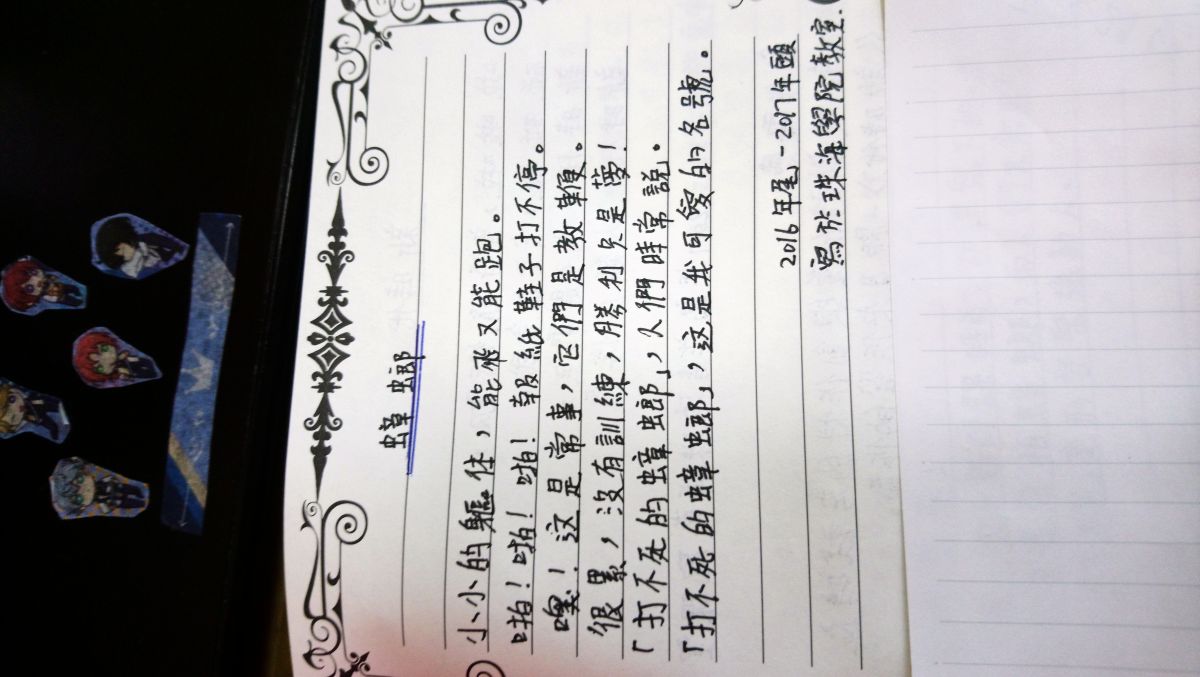 蟑螂
小小的軀体，能飛又能跑。
啪！啪！啪！報紙鞋子打不停。
嘿！这是常事，它們是教鞭。
很累，沒有訓練，勝利只是夢！
「打不死的蟑螂」，人們時常說。
「打不死的蟑螂」，这是我可愛的名號。
2016年尾-2017年頭
寫於珠海學院教室.